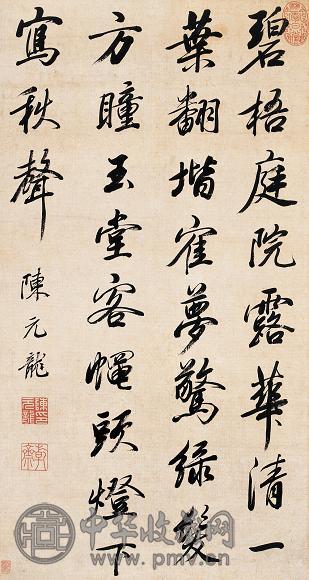 碧梧庭院露華清一
葉翻堦寉夢驚綠髮
方瞳玉堂客蠅頭燈下
寫秋聲
陳元龍
中华收藏网
www.pmv.cn